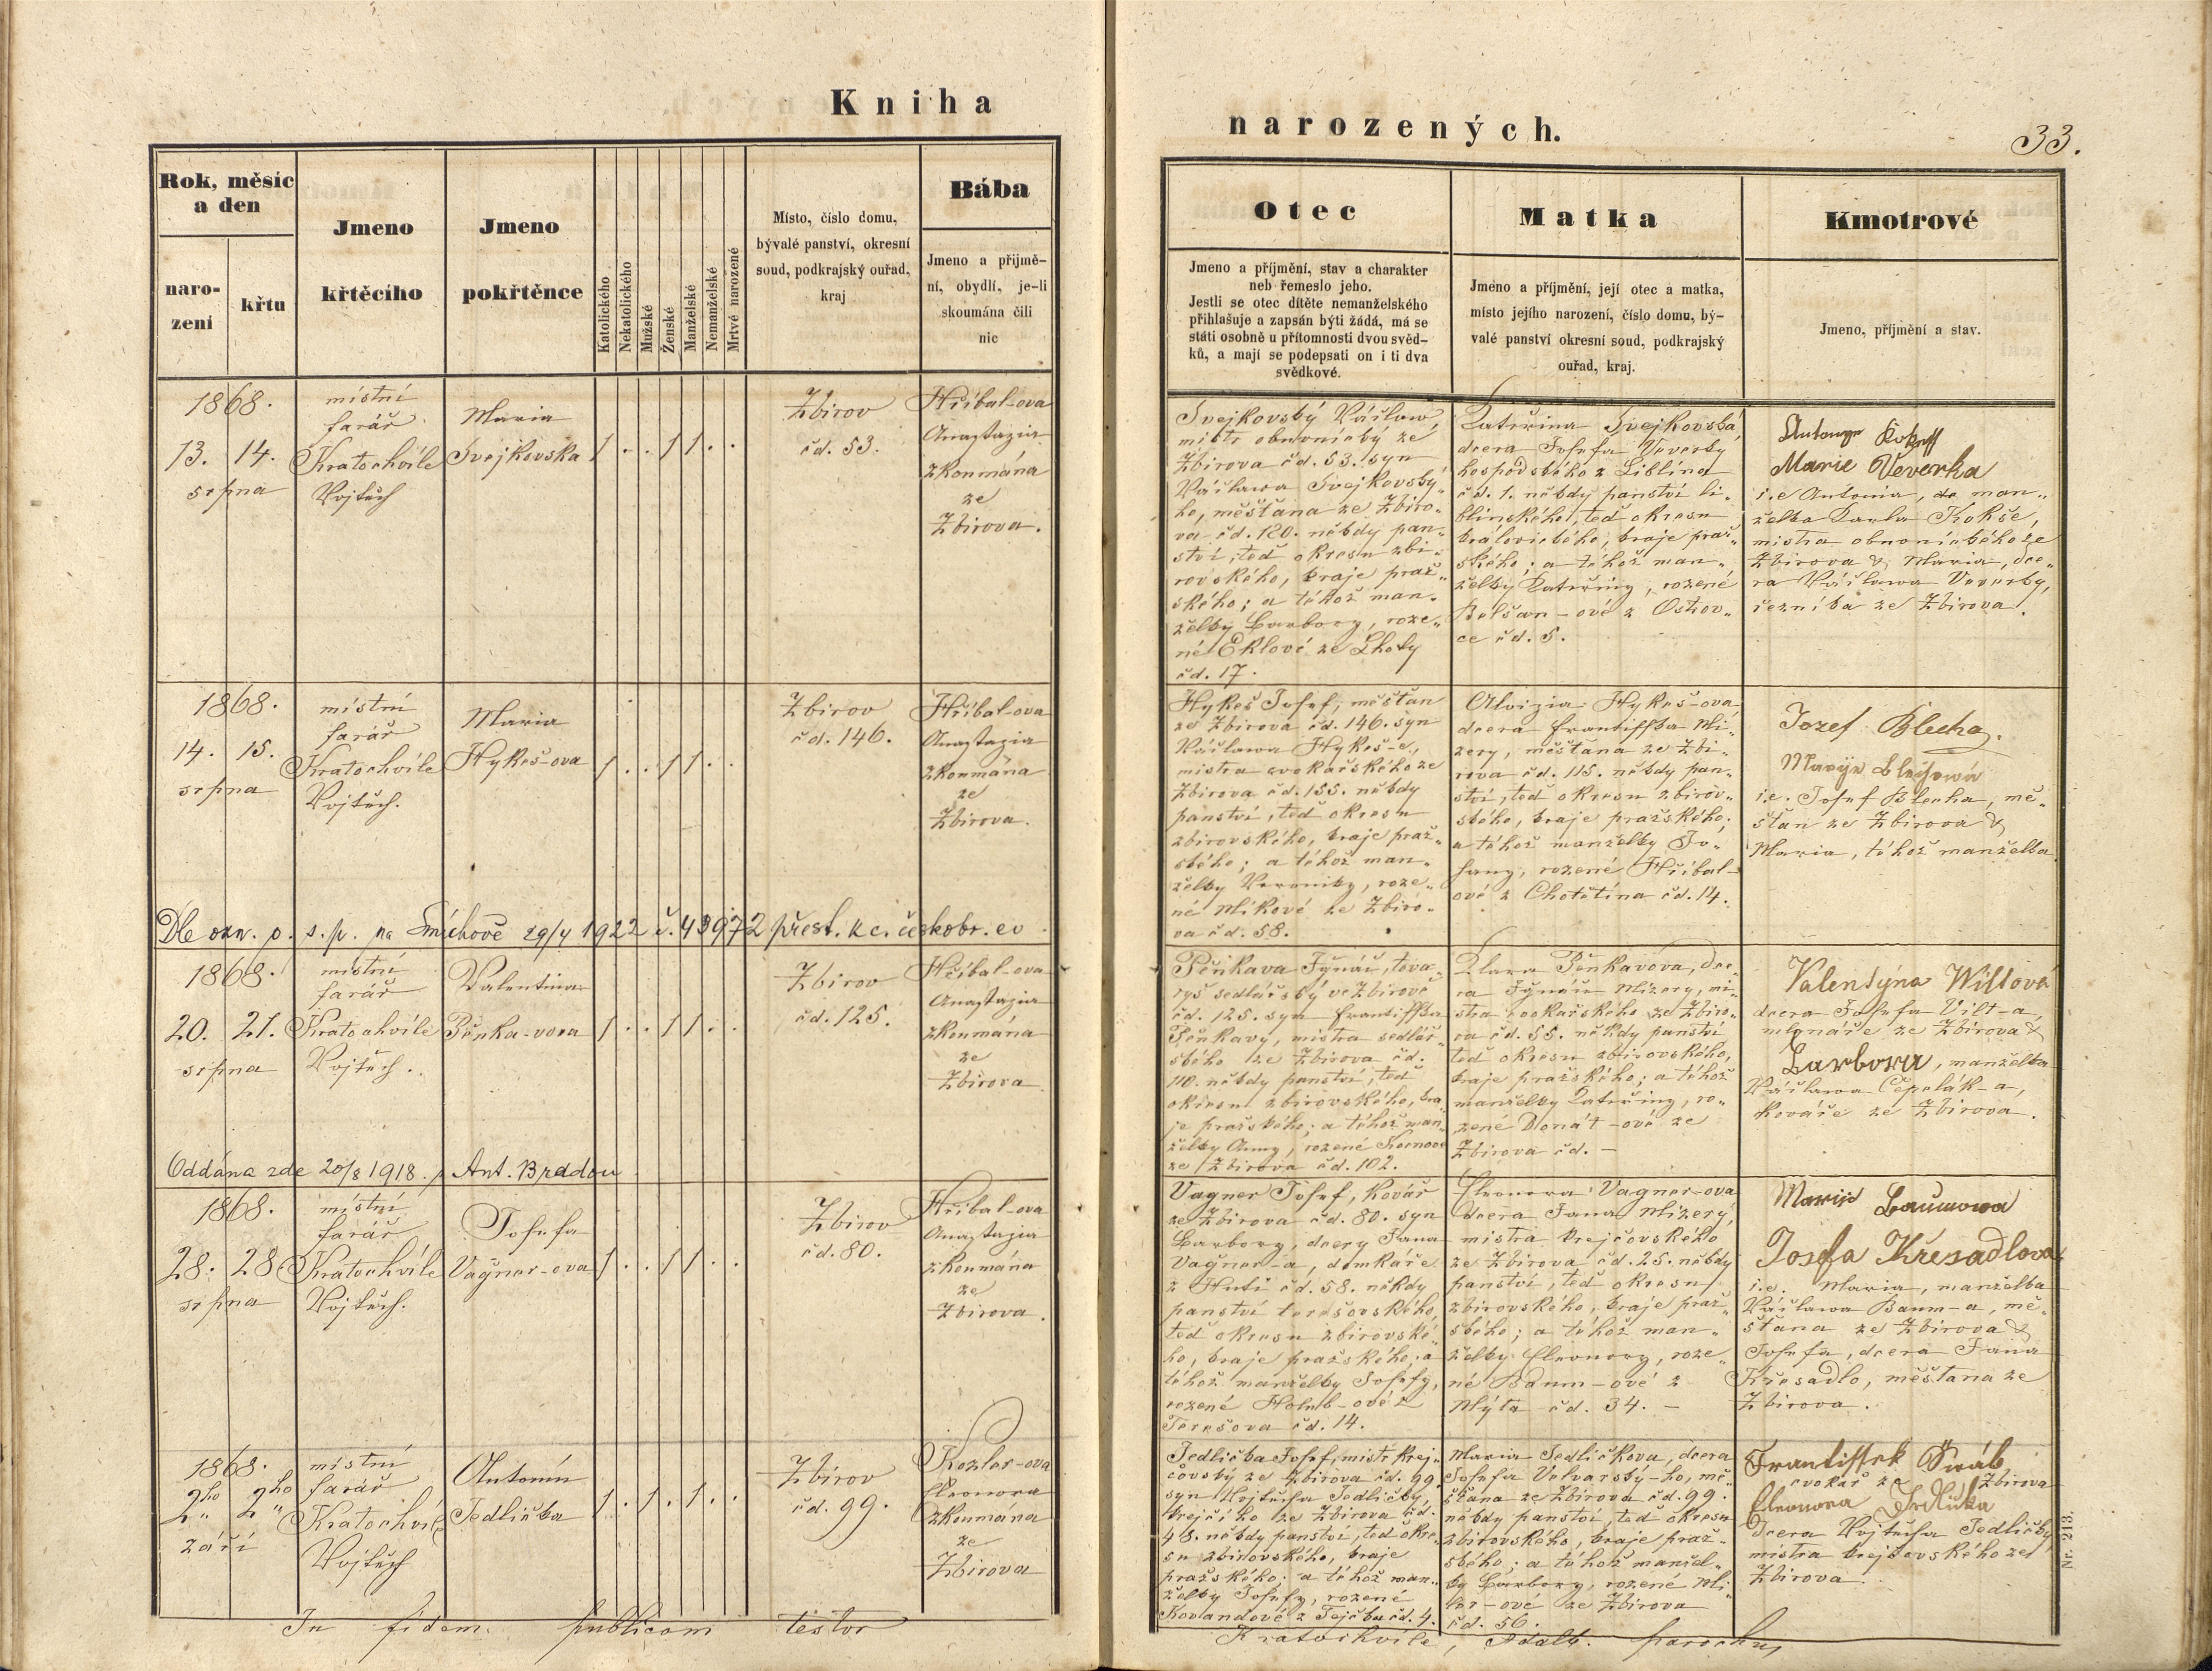 Kniha
Rok, měsíc
a den
naro-
zení
křtu
Jmeno
křtěcího
Jmeno
pokřtěnce
Katolického
Nekatolického
Mužské
Ženské
Manželské
Nemanželské
Mrtvé narozené
Místo, číslo domu,
bývalé panství, okresní
soud, podkrajský ouřad,
kraj
Bába
Jmeno a přijmě-
ní, obydlí, je-li
skoumána čili
nic
1868.
13. 14.
srpna
místní
farář
Kratochvíle
Vojtěch
Maria
Svejkovska
1 . . 1 1 . .
Zbirov
čd. 53.
Hříbal-ova
Anastazia
zkoumána
ze
Zbirova.
1868.
14. 15.
srpna
místní
farář
Kratochvíle
Vojtěch.
Maria
Hykeš-ova
1 . . 1 1 . .
Zbirov
čd. 146.
Hříbal-ova
Anastazia
zkoumána
ze
Zbirova.
Dle ozn. o. s. p. na Smíchově 29/4 1922 č. 43972 přest. k c. českobr. ev.
1868.
20. 21.
srpna
místní
farář
Kratochvíle
Vojtěch.
Valentina
Pěnka-vova
1 . . 1 1 . .
Zbirov
čd. 125.
Hříbal-ova
Anastazia
zkoumána
ze
Zbirova
Oddána zde 20/8 1918. s Ant. Bradou
1868.
28. 28
srpna
místní
farář
Kratochvíle
Vojtěch.
Josefa
Vagner-ova
1 . . 1 1 . .
Zbirov
čd. 80.
Hříbal-ova
Anastazia
zkoumána
ze
Zbirova.
1868.
2ho 2ho
září
místní
farář
Kratochvíl
Vojtěch
Antonín
Jedlička
1 . 1 . 1 . .
Zbirov
čd. 99.
Kozler-ova
Eleonora
zkoumána
ze
Zbirova
In fidem publicam testor
narozených.
33.
Otec
Jmeno a příjmění, stav a charakter
neb řemeslo jeho.
Jestli se otec dítěte nemanželského
přihlašuje a zapsán býti žádá, má se
státi osobně u přítomnosti dvou svěd-
ků, a mají se podepsati on i ti dva
svědkové.
Matka
Jmeno a příjmění, její otec a matka,
místo jejího narození, číslo domu, bý-
valé panství okresní soud, podkrajský
ouřad, kraj.
Kmotrové
Jmeno, příjmění a stav.
Svejkovský Václaw,
mistr obuvnický ze
Zbirova čd. 53. syn
Václawa Svejkovský-
ho, měšťana ze Zbiro-
va čd. 120. někdy pan-
ství, teď okresu zbi-
rovského, kraje praž-
ského; a téhož man-
želky Barbory, roze-
né Eklové ze Lhoty
čd. 17.
Kateřina Svejkovská,
dcera Josefa Veverky
hospodského z Liblína
čd. 1. někdy panství li-
blínského, teď okresu
královického, kraje praž-
ského; a téhož man-
želky Kateřiny, rozené
Bolšan-ové z Ostrov-
ce čd. 5.
Marie Veverka
i.e Antonia, man-
želka Karla Kokše,
mistra obuvnického ze
Zbirova & Maria, dce-
ra Václawa Veverky,
řezníka ze Zbirova.
Hykeš Josef, měšťan
ze Zbirova čd. 146. syn
Václawa Hykeš-e,
mistra cvokařského ze
Zbirova čd. 155. někdy
panství, teď okresu
zbirovského, kraje praž-
ského; a téhož man-
želky Veroniky, roze-
né Mikové ze Zbiro-
va čd. 58.
Aloizia Hykeš-ova,
dcera Františka Mi-
zery, měšťana ze Zbi-
rova čd. 115. někdy pan-
ství, teď okresu zbirov-
ského, kraje pražského;
a téhož manželky Jo-
hany, rozené Hříbal-
ové z Chotětína čd. 14.
Jozef Blecha.
Maryje Blechowá
i.e. Josef Blecha, mě-
šťan ze Zbirova &
Maria, téhož manželka.
Pěnkava Ignác, tova-
ryš sedlářský ve Zbirově
čd. 125. syn Františka
Pěnkavy, mistra sedlář-
ského ze Zbirova čd.
110. někdy panství, teď
okresu zbirovského, kra-
je pražského; a téhož man-
želky Anny, rozené
ze Zbirova čd. 102.
Klara Pěnkavova, dce-
ra Ignáce Mizery, mi-
stra cvokařského ze Zbiro-
va čd. 55. někdy panství
teď okresu zbirovského,
kraje pražského; a téhož
manželky Kateřiny, ro-
zené Donát-ové ze
Zbirova čd. -
Valentýna Willová
dcera Josefa Vilt-a,
mlynáře ze Zbirova &
Barbora, manželka
Václawa Čepelák-a,
kováře ze Zbirova.
Vagner Josef, kovář
ze Zbirova čd. 80. syn
Barbory, dcery Jana
Vagner-a, domkáře
z Hutě čd. 58. někdy
panství terešovského,
teď okresu zbirovské-
ho, kraje pražského; a
téhož manželky Josefy,
rozené Holub-ové z
Terešova čd. 14.
Eleonora Vagner-ova
dcera Jana Mizery,
mistra krejčovského
ze Zbirova čd. 25. někdy
panství, teď okresu
zbirovského, kraje praž-
ského; a téhož man-
želky Eleonory, roze-
né Baum-ové z
Mýta čd. 34. -
Marije Baumowa
Josefa Křesadlova
i.e. Maria, manželka
Václawa Baum-a, mě-
šťana ze Zbirova &
Josefa, dcera Jana
Křesadlo, měšťana ze
Zbirova.
Jedlička Josef, mistr krej-
čovský ze Zbirova čd. 99.
syn Vojtěcha Jedličky,
krejčího ze Zbirova čd.
48. někdy panství, teď okre-
su zbirovského, kraje
pražského; a téhož man-
želky Josefy, rozené
Kovandové z Tejčka čd. 4.
Maria Jedličkova, dcera
Josefa Velvarský-ho, mě-
šťana ze Zbirova čd. 99.
někdy panství, teď okresu
zbirovského, kraje praž-
ského; a téhož manžel-
ky Barbory, rozené
ze Zbirova
čd. 56.
Frantissek Siváb
cvokář ze Zbirova
Eleonora Jedlička
dcera Vojtěcha Jedličky,
mistra krejčovského ze
Zbirova.
Nr. 213.
Kratochvíle, Adalb. parochus